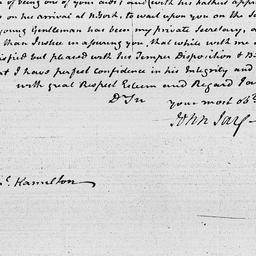 of being one of your aids; and (with his father's app
on his arrival at N York, to wait upon you on the
young Gentleman has been my private Secretary,
than Justice in assuring you, that while with me
but pleased with his Temper Disposition &
I have perfect Confidence in his Integrity and
with great Respect Esteem and Regard
Dr Sir
your most ob
John Jay
Hamilton